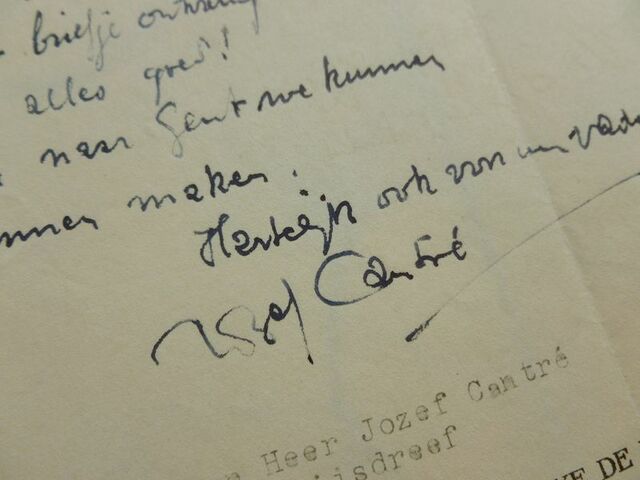 briefje ontvangen
alles goed!
naar Gent we kunnen
maken.
Hartelijk ook voor uw vader
Jozef Cantré
Heer Jozef Cantré
isdreef
DE